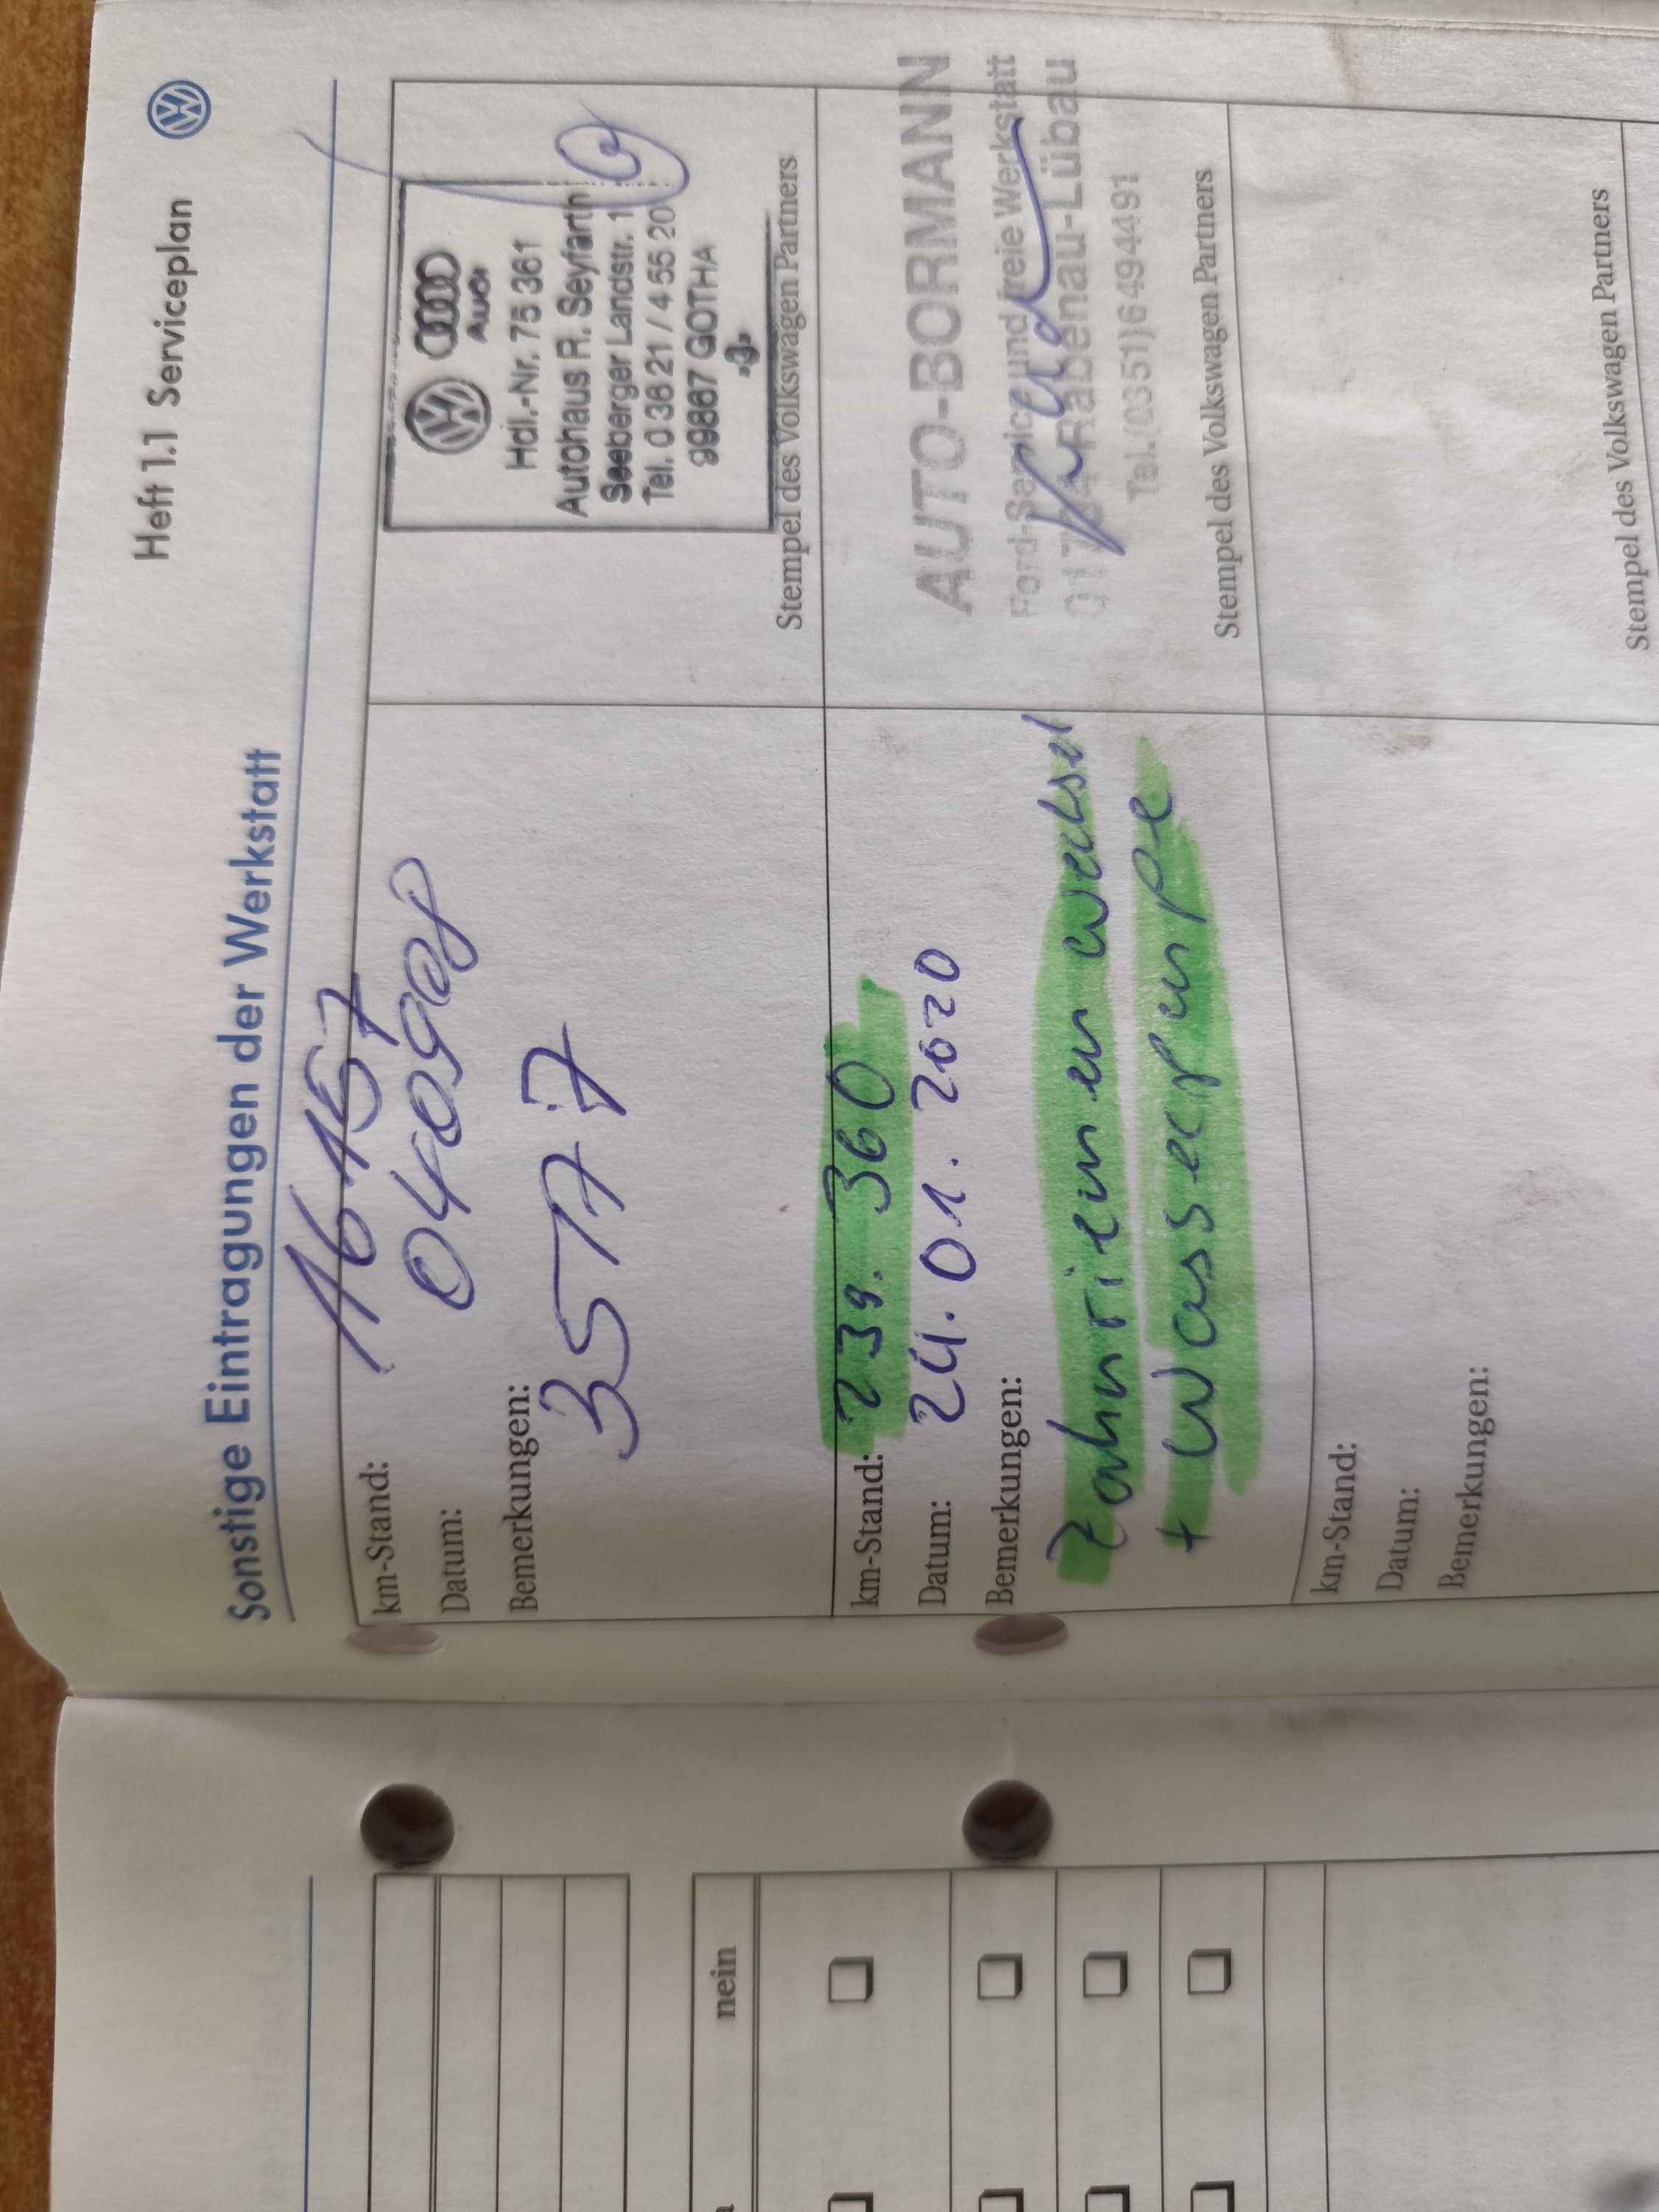 Heft 1.1 Serviceplan
Sonstige Eintragungen der Werkstatt
km-Stand: 16157
Datum: 040908
Bemerkungen:
3577
Audi
Hdl.-Nr. 75 361
Autohaus R. Seyfarth
Seeberger Landstr. 1
Tel. 0 36 21 / 4 55 20
99867 GOTHA
Stempel des Volkswagen Partners
km-Stand: 239.360
Datum: 24.01.2020
Bemerkungen:
Zahnriemen wechsel
+ Wasserpumpe
AUTO-BORMANN
Ford-Service und freie Werkstatt
Rabenau-Lübau
Tel.(0351)6494491
Stempel des Volkswagen Partners
km-Stand:
Datum:
Bemerkungen:
Stempel des Volkswagen Partners
nein